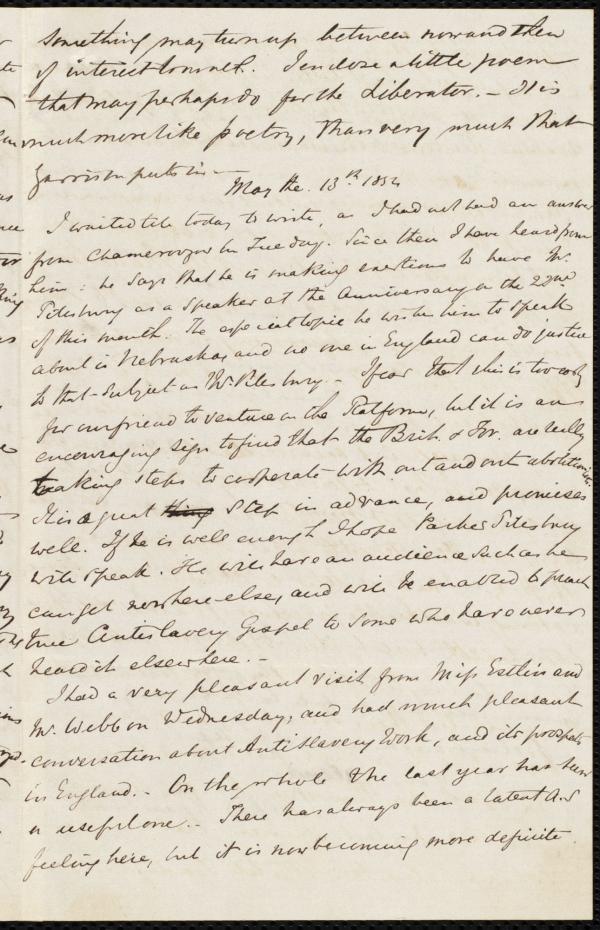 something may turn up between now and then
of interest to us all. I enclose a little poem
that may perhaps do for the Liberator. - It is
much more like poetry, than very much that
Garrison puts in -
May the 13th 1854
I waited till today to write, as I had not had an answer
from Chamerovzow on Tuesday. Since then I have heard from
him: he says that he is making exertions to have Mr.
Pilsbury as a speaker at the Anniversary on the 22nd
of this month. The especial topic he wishes him to speak
about is Nebraska, and no one in England can do justice
to that subject as Mr. Pilsbury. - I fear that this is too early
for our friend to venture on the Platform, but it is an
encouraging sign to find that the Brit. & For. are really
taking steps to cooperate with out and out abolitionists.
It is a great thing step in advance, and promises
well. If he is well enough I hope Parker Pilsbury
will speak. He will have an audience such as he
can get nowhere else, and will be enabled to preach
true Antislavery Gospel to some who have never
heard it elsewhere. -
I had a very pleasant visit from Miss Estlin and
Mr. Webb on Wednesday, and had much pleasant
conversation about Antislavery Work, and its prospects
in England. - On the whole the last year has been
a useful one. - There has always been a latent A.S
feeling here, but it is now becoming more definite